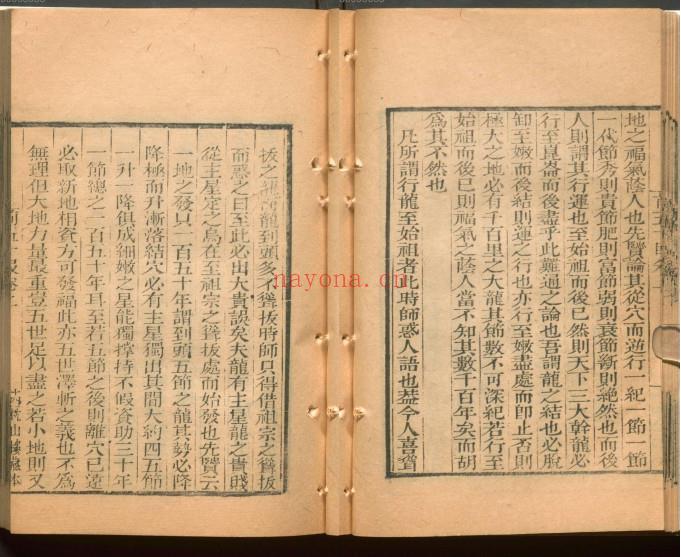 地之福氣蔭人也先賢論其從穴而逆行一紀一節一節
一代節秀則貴節肥則富節弱則衰節斷則絶然也而後
人則謂其行運也至始祖而後已然則天下三大幹龍必
行至崑崙而後盡乎此難通之論也吾謂龍之結也必脫
卸至嫩而後結則運之行也亦行至嫩盡處而即止否則
極大之地必有千百里之大龍其節數不可深紀若行至
始祖而後已則福氣之蔭人當不知其數千百年矣而胡
爲其不然也
凡所謂行龍至始祖者此時師惑人語也葢令人喜聳
拔之龍而龍到頭多不聳拔時師只得借祖宗之聳拔
而惑之曰至此必出大貴誤矣夫龍有主星龍之貴賤
從主星定之烏在至祖宗之聳拔處而始發也先賢云
一地之發只一百五十年謂到頭五節之龍其勢必降
降極而升漸落結穴必有主星獨出其間大約四五節
一升一降俱成細嫩之星能獨撑持不假資助三十年
一節總之一百五十年耳至若五節之後則離穴已遠
必取新地相資方可發福此亦五世澤斬之義也不爲
無理但大地力量最重豈五世足以盡之若小地則又
nayona.cn